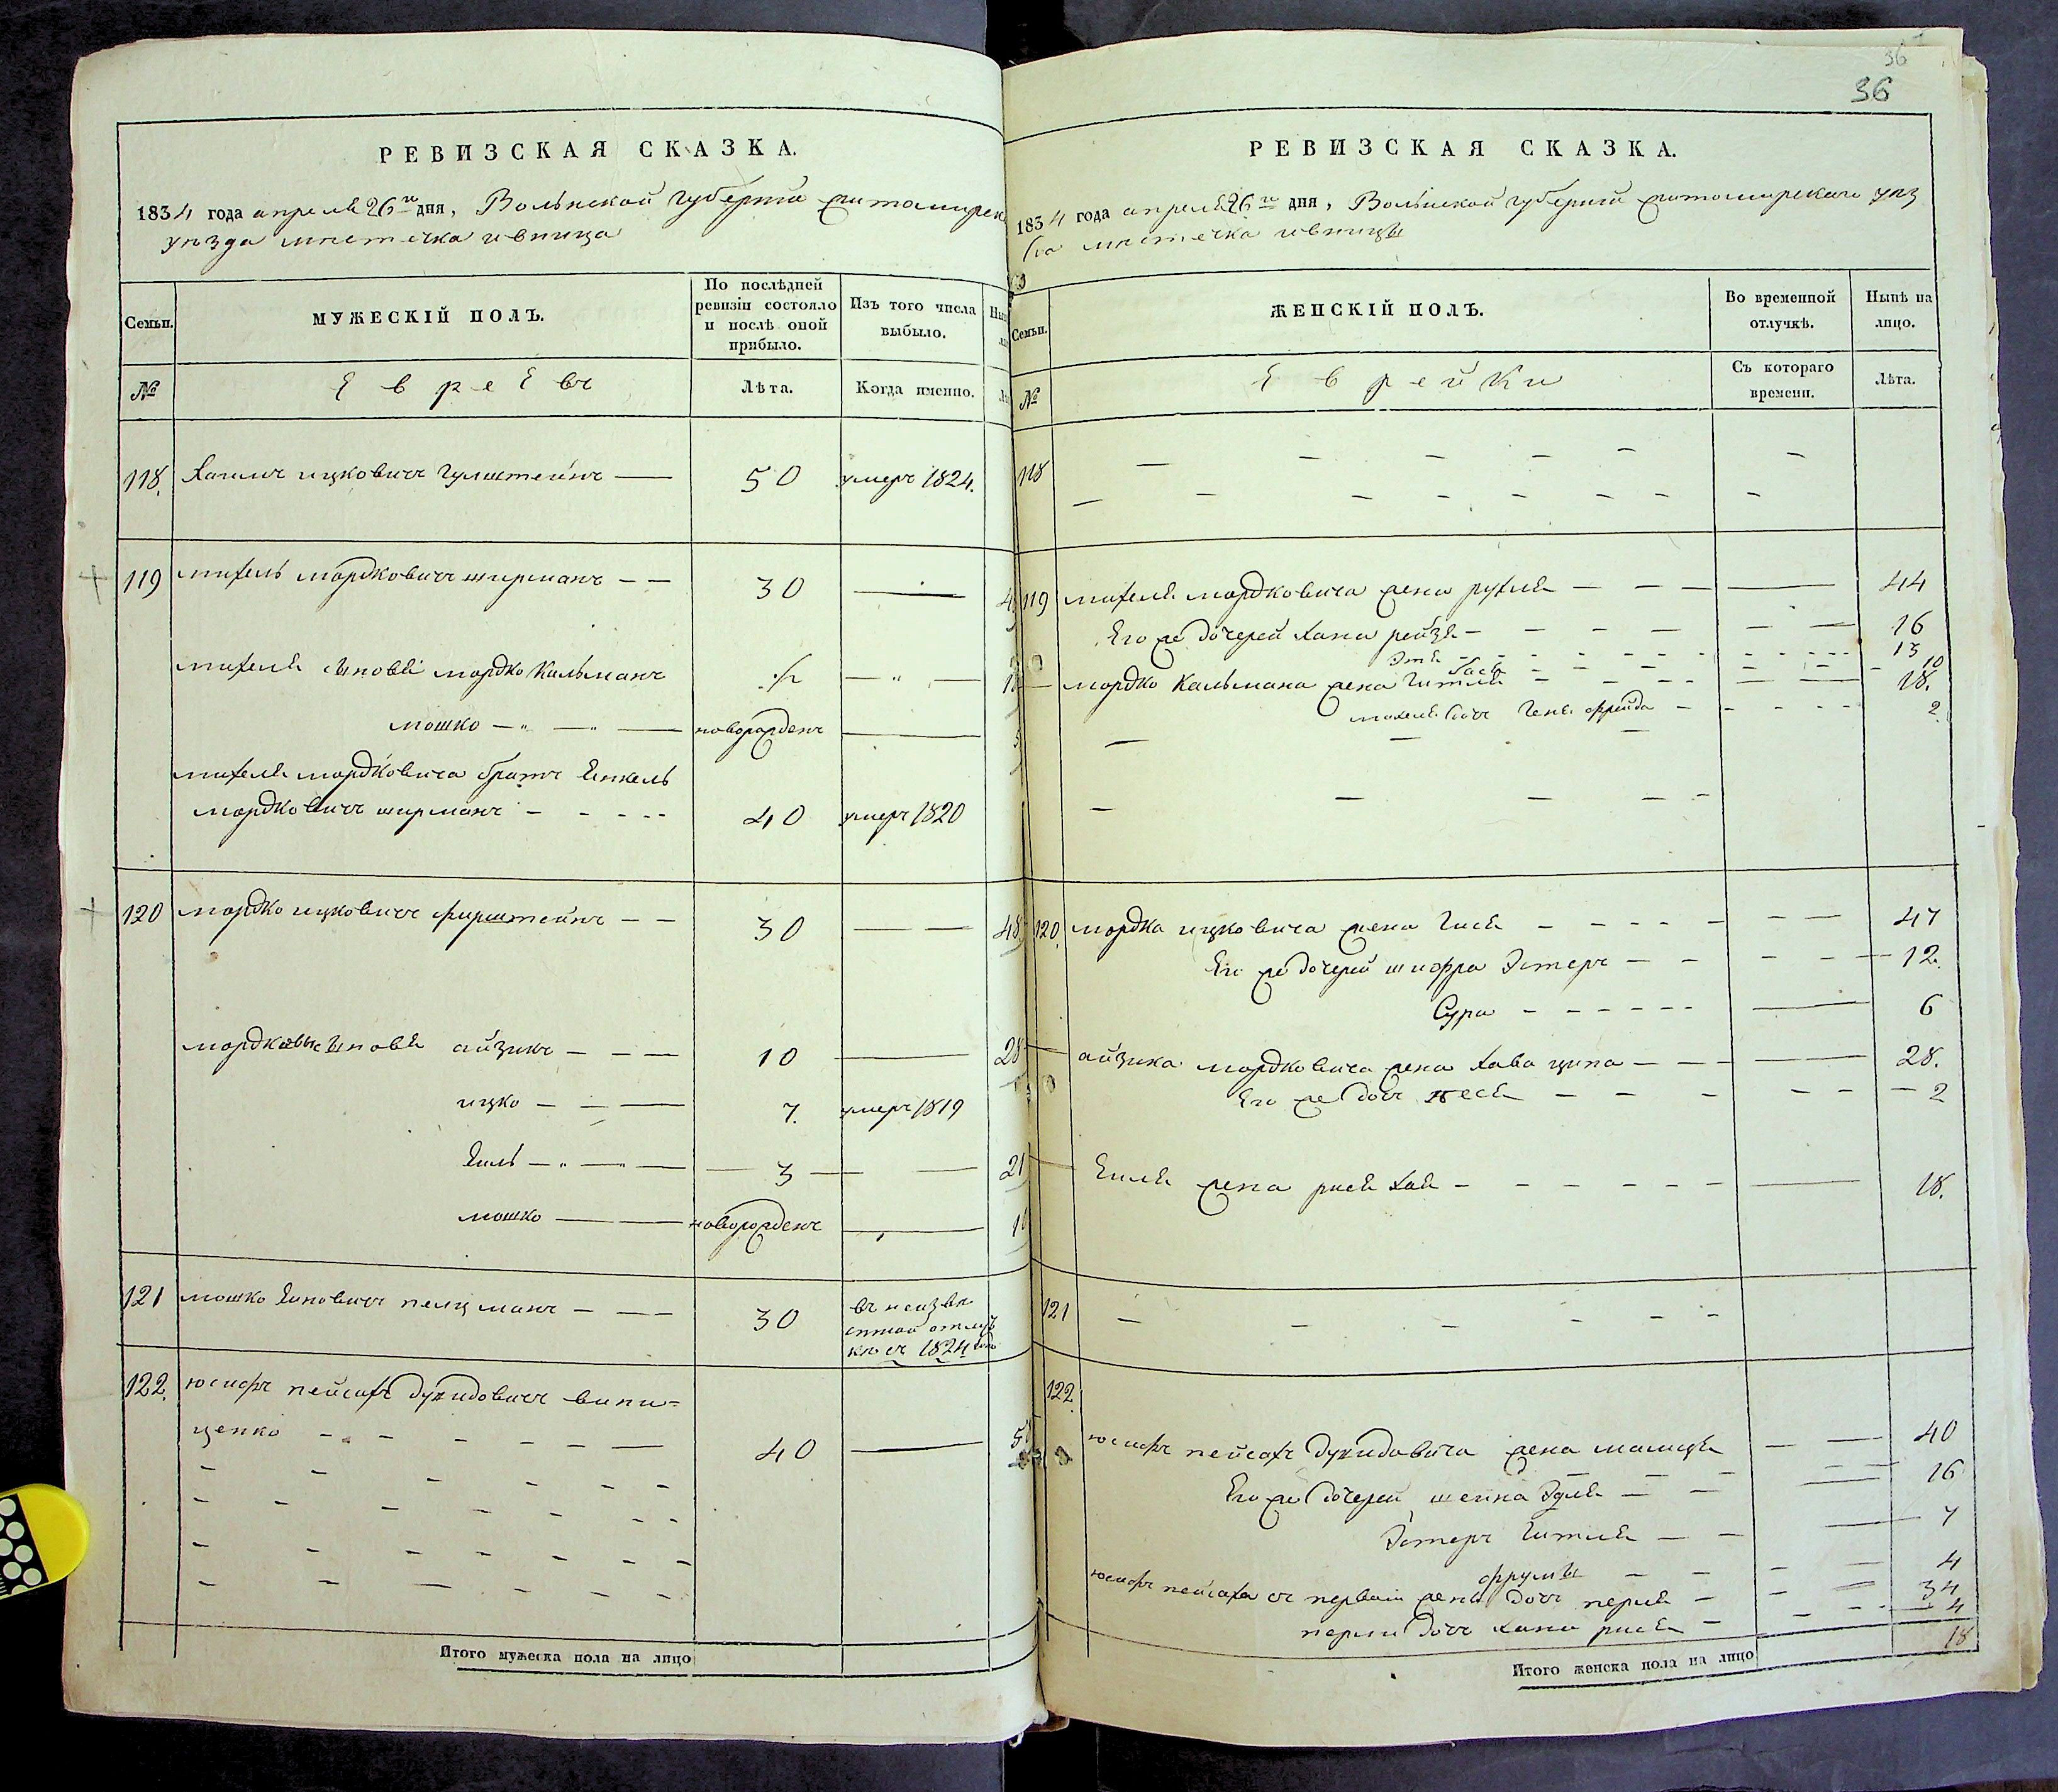 РЕВИЗСКАЯ СКАЗКА.
1834 года апреля 26го дня, Волынской губернии житомирск
уѣзда мѣстечка ивница
Семьи.
МУЖЕСКІЙ ПОЛЪ.
По послѣдней ревизіи состояло и послѣ оной прибыло.
Изъ того числа выбыло.
№
Евреевъ
Лѣта.
Когда именно.
118. Хаимъ ицковичъ 50 умеръ 1824.
119 михель мордковичъ ширманъ 30
михеля сыновья мордко Кальманъ
мошко новорожденъ
михеля мордковича братъ Янкель
мордковичъ ширманъ 40 умеръ 1820
120 мордко ицковичъ фирштейнъ 30 48
мордковы сыновья айзикъ 10 28
ицко 7. умеръ 1819
3 21
мошко новорожденъ
121 мошко 30 въ неизвѣ
стной отлуч
кѣ съ 1824 года
122. юсифъ пейсахъ
ценко 40
Итого мужеска пола на лицо
36
36
РЕВИЗСКАЯ СКАЗКА.
1834 года апреля 26го дня, Волынской губерніи житомирскаго уѣз
да мѣстечка ивницы
Семьи.
ЖЕНСКІЙ ПОЛЪ.
Во временной отлучкѣ.
Нынѣ на лицо.
№
Еврейки
Съ котораго времени.
Лѣта.
118
119 михеля мордковича жена рухля 44
Его же дочерей хана рейзя 16
Этя 13
Бася 10
мордко Кальмана жена Гитля 18.
дочь фрейда 2
120. мордка ицковича жена 47
Его же дочерей шифра Эстеръ 12.
Сура 6
айзика мордковича жена хава ципа 28.
Его же дочь песя 2
жена рися хая 18.
121
122.
юсифъ пейсахъ жена 40
Его же дочерей шейна Эдля 16
Эстеръ 7
фрумы 4
юсифъ пейсаха съ первой жены дочь перля 34
перли дочь хана рися 4
Итого женска пола на лицо 18